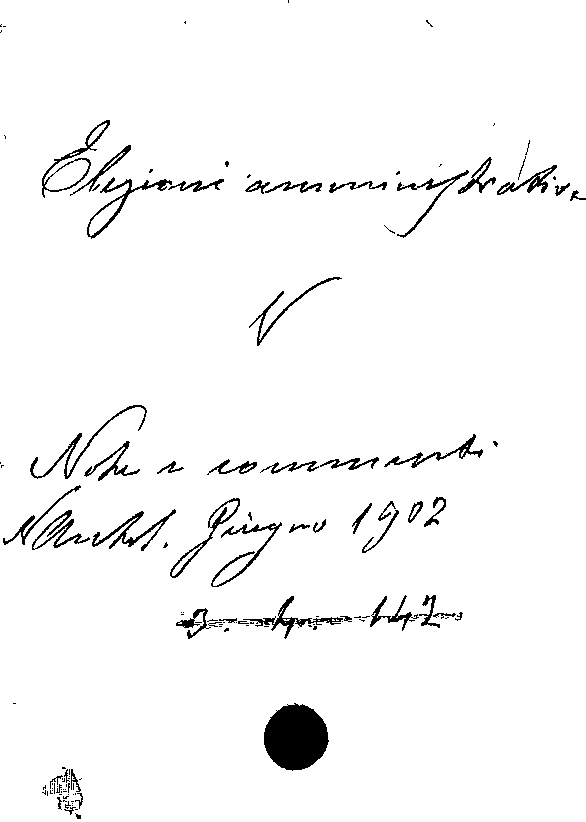 Elezioni amministrative
V
Note e commenti
N Antol. Giugno 1902
3. 4. 147